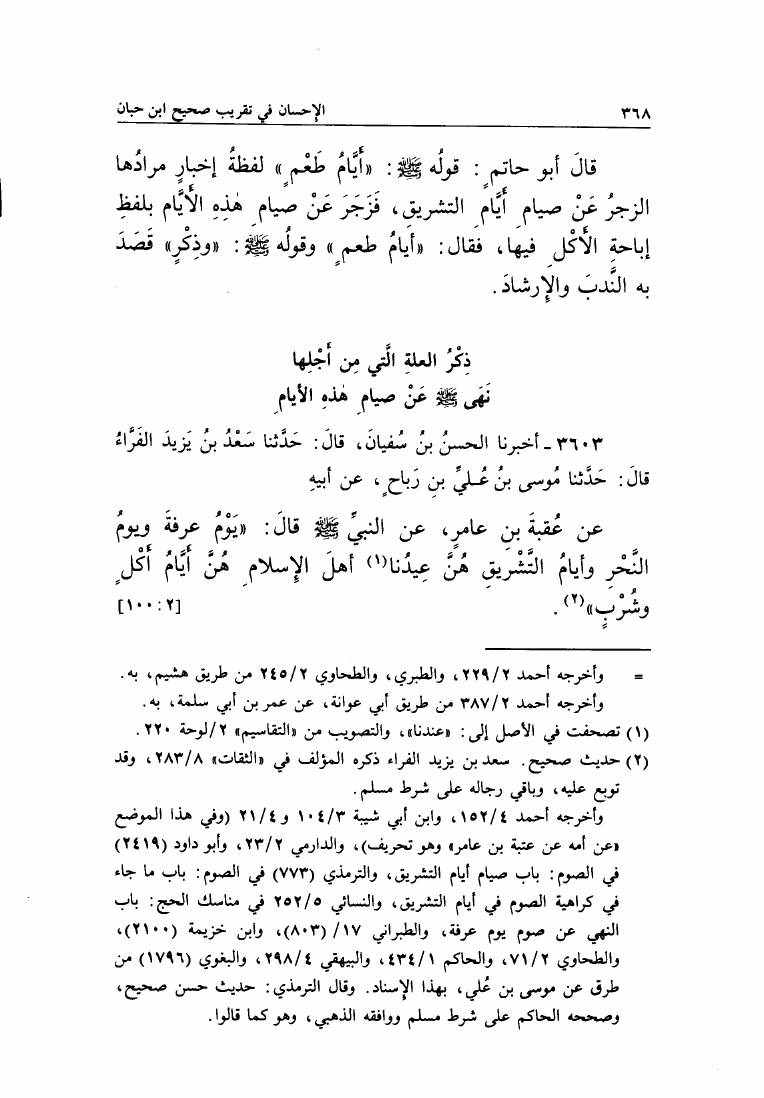 ٣٦٨ الإحسان في تقريب صحيح ابن حبان
قالَ أبو حاتمٍ : قولُه ﷺ : «أَيَّامُ طَعْمٍ» لفظةُ إخبارٍ مرادُها
الزجرُ عَنْ صيامِ أَيَّامِ التشريقِ، فَزَجَرَ عَنْ صيامِ هٰذِهِ الأيَّامِ بلفظِ
إباحةِ الأكْلِ فيها، فقال: «أيامُ طعمٍ» وقولُه ﷺ : «وذِكْرٍ» قَصَدَ
به النَّدبَ والإِرشادَ.
ذِكْرُ العلةِ الَّتي مِن أَجْلِها
نَهَى ﷺ عَنْ صيامِ هٰذهِ الأيامِ
٣٦٠٣ ـ أخبرنا الحسنُ بنُ سُفيانَ، قالَ: حَدَّثنا سَعْدُ بنُ يَزيدَ الفَرَّاءُ
قالَ: حَدَّثنا مُوسى بنُ عُـليِّ بنِ رَباحٍ، عن أبيهِ
عن عُقبةَ بنِ عامرٍ، عن النبيِّ ﷺ قالَ: «يَوْمُ عرفةَ ويومُ
النَّحْرِ وأيامُ التَّشْريقِ هُنَّ عِيدُنا(١) أهلَ الإِسلامِ هُنَّ أَيَّامُ أَكْلٍ
وشُرْبٍ»(٢). [٢ : ١٠٠]
= وأخرجه أحمد ٢٢٩/٢، والطبري، والطحاوي ٢٤٥/٢ من طريق هشيم، به.
وأخرجه أحمد ٣٨٧/٢ من طريق أبي عوانة، عن عمر بن أبي سلمة، به.
(١) تصحفت في الأصل إلى: «عندنا»، والتصويب من «التقاسيم» ٢/لوحة ٢٢٠.
(٢) حديث صحيح. سعد بن يزيد الفراء ذكره المؤلف في «الثقات» ٢٨٣/٨، وقد
توبع عليه، وباقي رجاله على شرط مسلم.
وأخرجه أحمد ١٥٢/٤، وابن أبي شيبة ١٠٤/٣ و٢١/٤ (وفي هذا الموضع
«عن أمه عن عتبة بن عامر» وهو تحريف)، والدارمي ٢٣/٢، وأبو داود (٢٤١٩)
في الصوم: باب صيام أيام التشريق، والترمذي (٧٧٣) في الصوم: باب ما جاء
في كراهية الصوم في أيام التشريق، والنسائي ٢٥٢/٥ في مناسك الحج: باب
النهي عن صوم يوم عرفة، والطبراني ١٧/ (٨٠٣)، وابن خزيمة (٢١٠٠)،
والطحاوي ٧١/٢، والحاكم ٤٣٤/١، والبيهقي ٢٩٨/٤، والبغوي (١٧٩٦) من
طرق عن موسى بن عُلي، بهذا الإِسناد. وقال الترمذي: حديث حسن صحيح،
وصححه الحاكم على شرط مسلم ووافقه الذهبي، وهو كما قالوا.